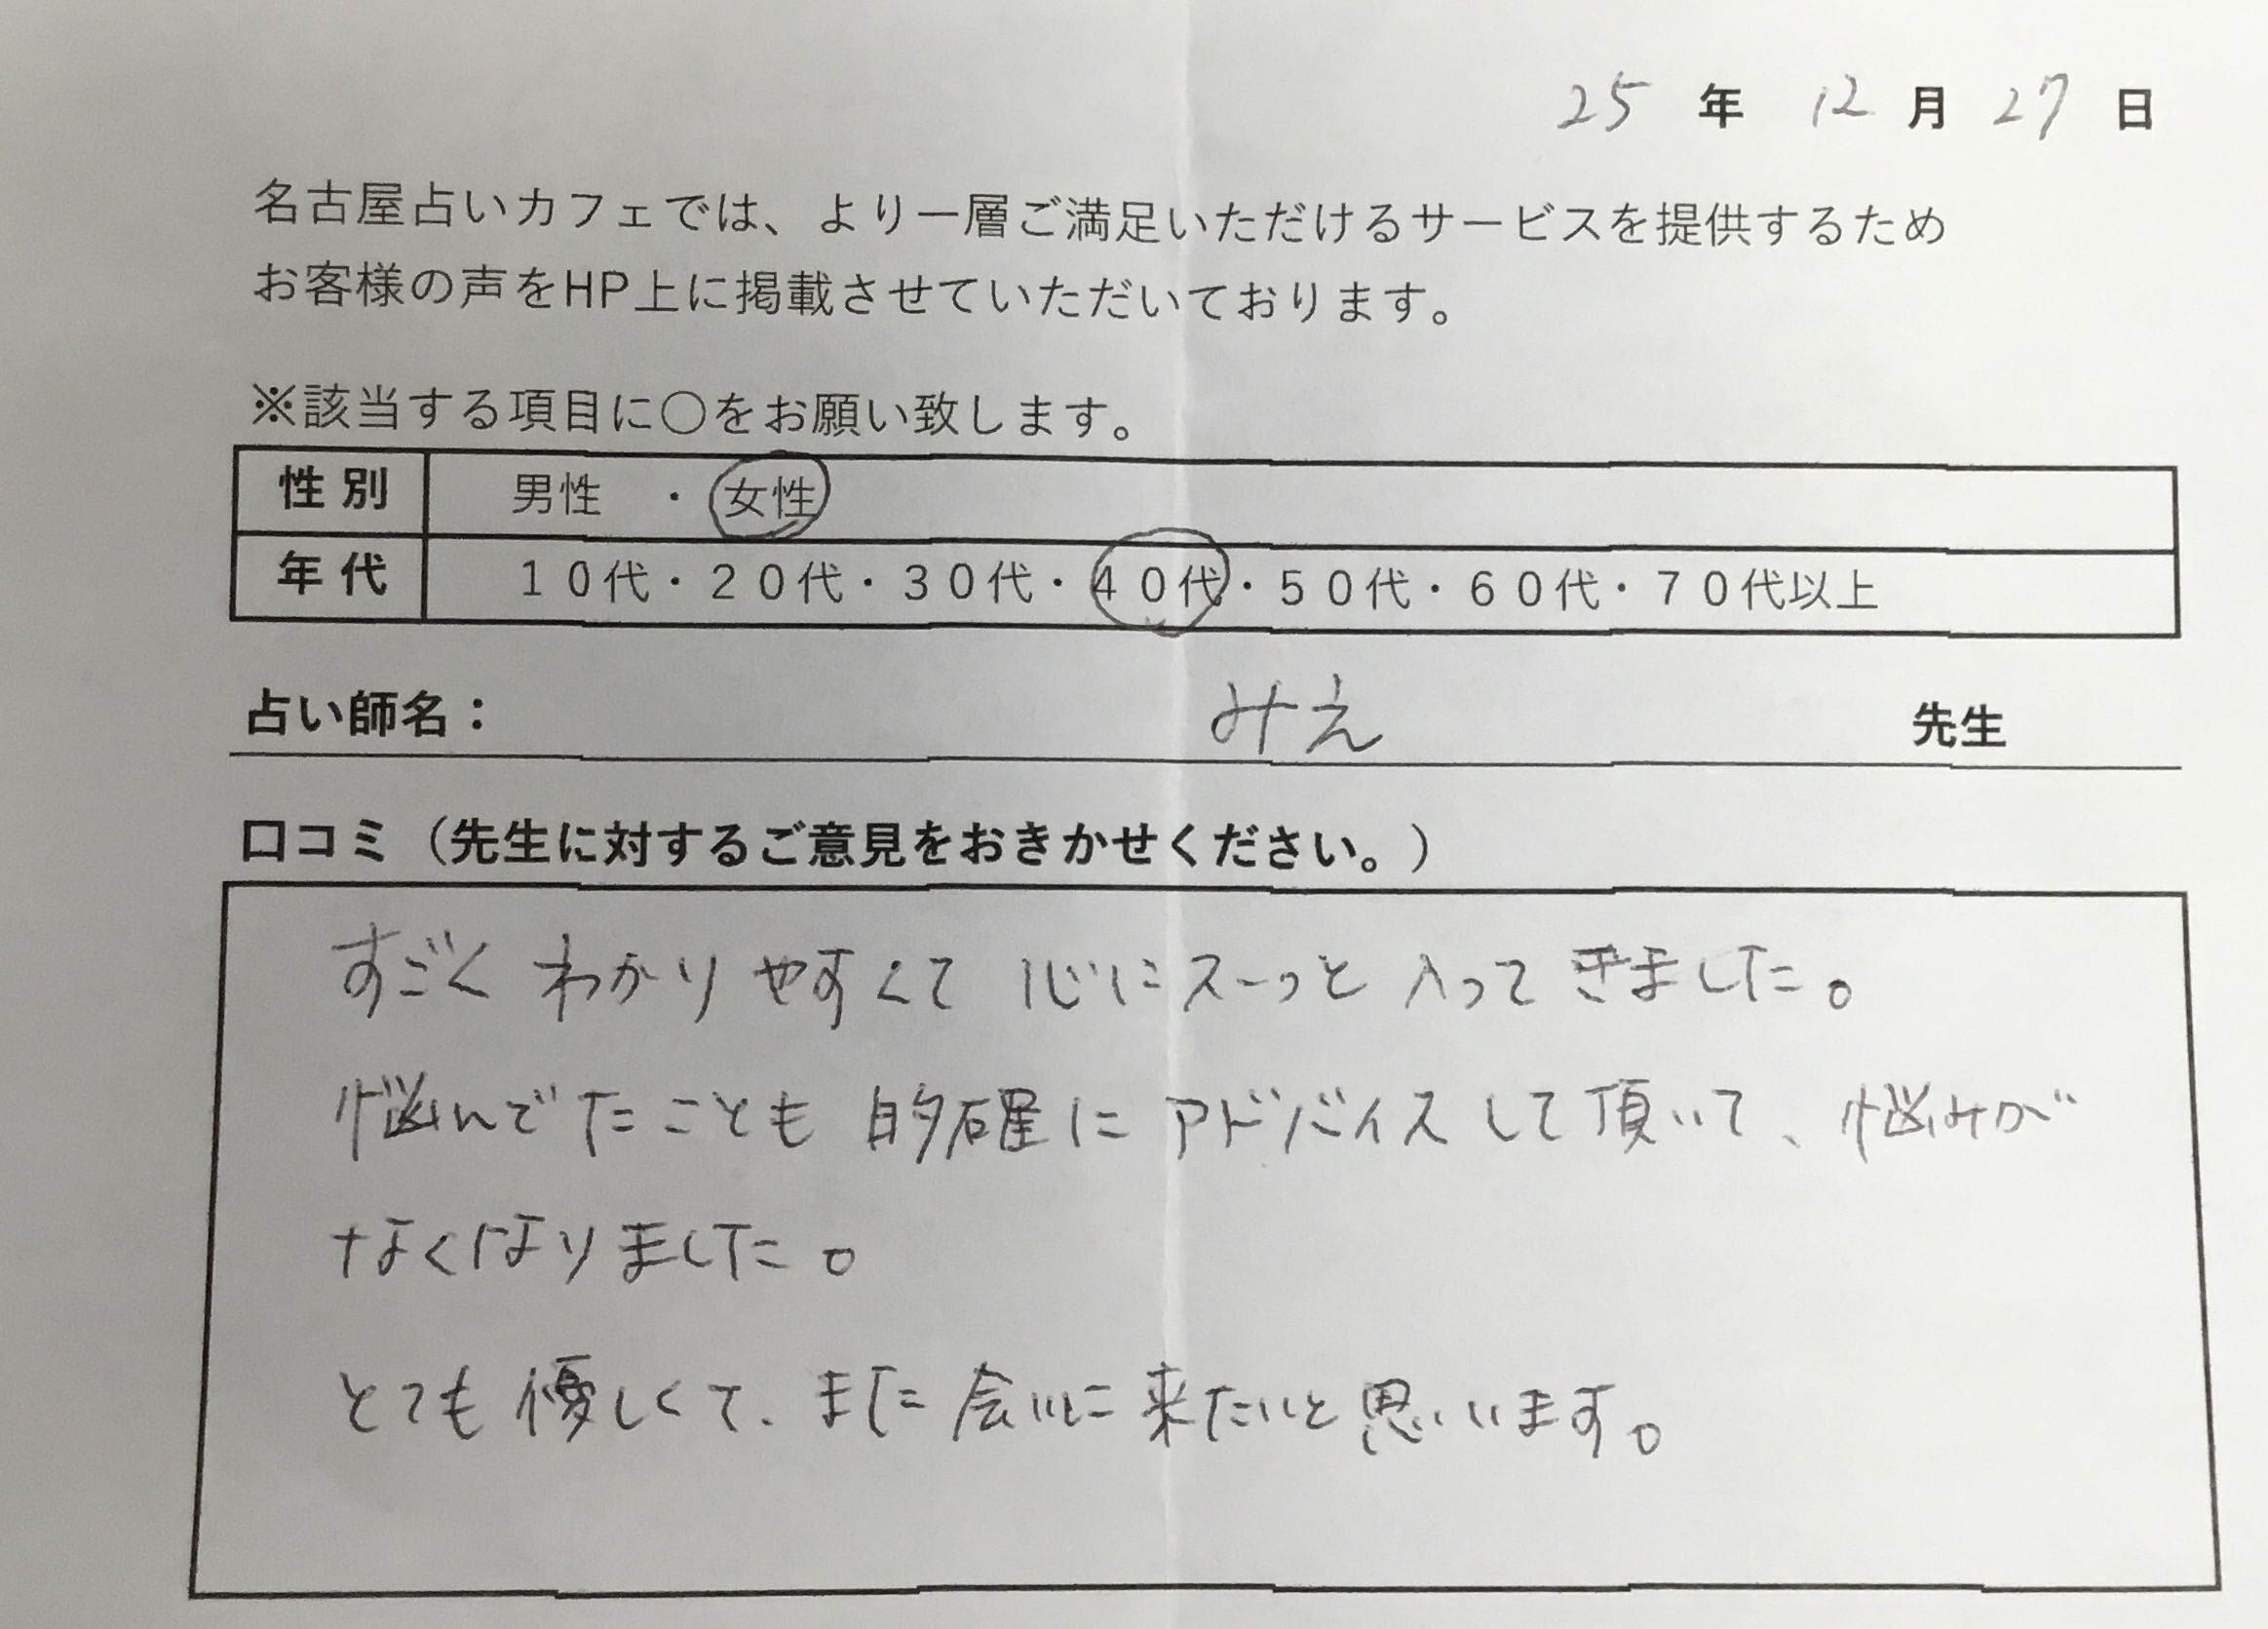 25 年 12 月 27 日
名古屋占いカフェでは、より一層ご満足いただけるサービスを提供するため
お客様の声をHP上に掲載させていただいております。
※該当する項目に〇をお願い致します。
性別 男性 ・ 女性
年代 10代・20代・30代・40代・50代・60代・70代以上
占い師名： みえ 先生
口コミ（先生に対するご意見をおきかせください。）
すごく わかりやすくて 心にスーっと 入って きました。
悩んでたことも 的確に アドバイスして頂いて、悩みが
なくなりました。
とても優しくて、また会いに来たいと思います。